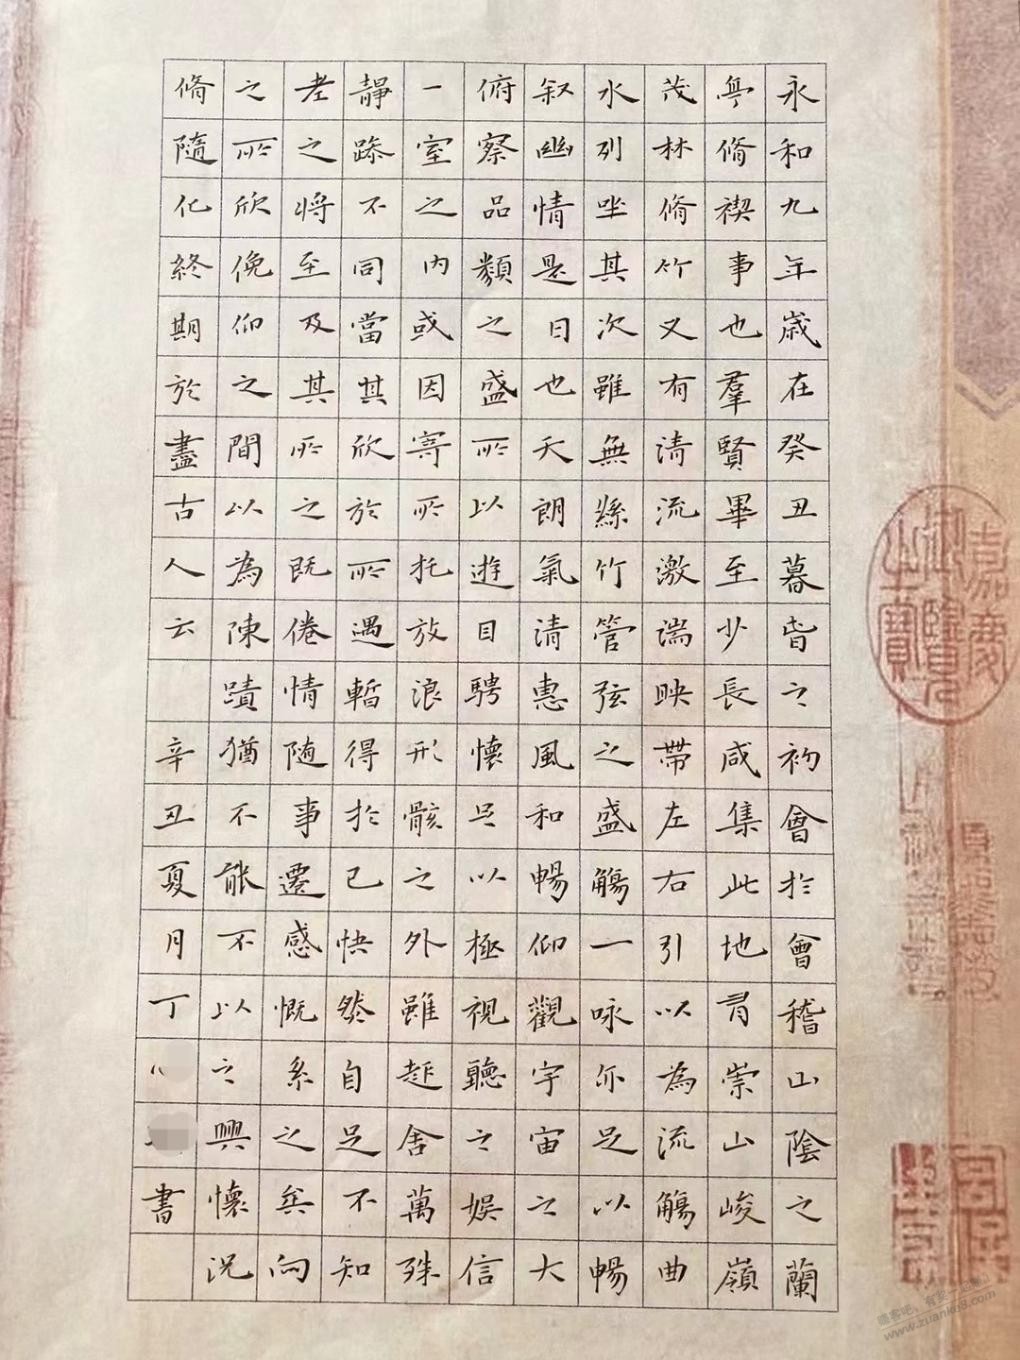 永和九年歲在癸丑暮春之初會於會稽山陰之蘭
亭脩禊事也羣賢畢至少長咸集此地有崇山峻嶺
茂林脩竹又有清流激湍映帶左右引以為流觴曲
水列坐其次雖無絲竹管弦之盛觴一咏亦足以暢
叙幽情是日也天朗氣清惠風和暢仰觀宇宙之大
俯察品類之盛所以遊目騁懷足以極視聽之娛信
一室之內或因寄所托放浪形骸之外雖趣舍萬殊
靜躁不同當其欣於所遇暫得於己快然自足不知
老之將至及其所之既倦情随事遷感慨系之矣向
之所欣俛仰之間以為陳蹟猶不能不以之興懷況
脩隨化終期於盡古人云 辛丑夏月丁 書
嘉慶御覽之寶
www.zuanke8.com